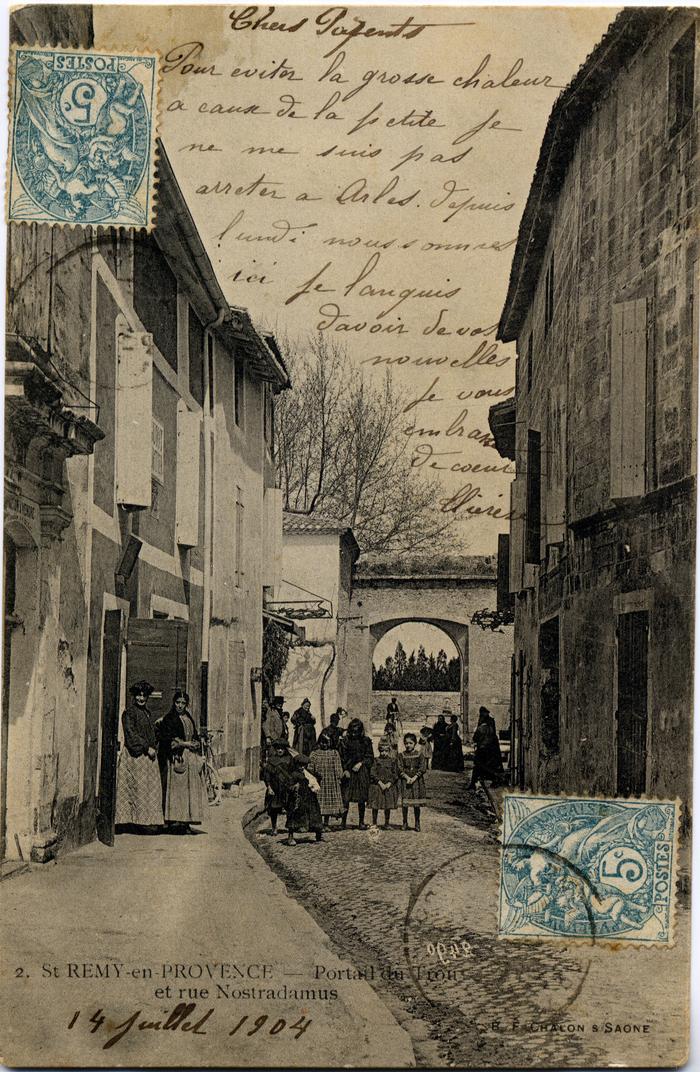 Chers Parents
Pour eviter la grosse chaleur
a cause de la petite je
ne me suis pas
arreter a Arles. depuis
lundi nous sommes
ici je languis
davoir de vos
nouvelles
je vous
embrasse
de coeur
POSTES
5c
5c
POSTES
2. St REMY-en-PROVENCE — Portail du Trou
et rue Nostradamus
14 Juillet 1904
B. F. CHALON S SAONE